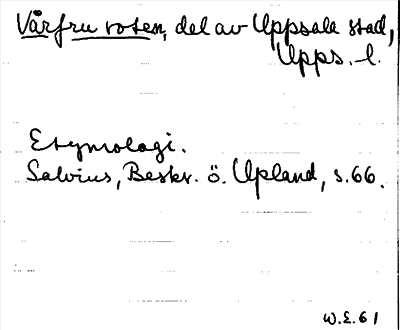 Vårfru roten, del av Uppsala stad,
Upps. l.
Etymologi.
Salvius, Beskr. ö. Upland, s. 66.
W.E. 61